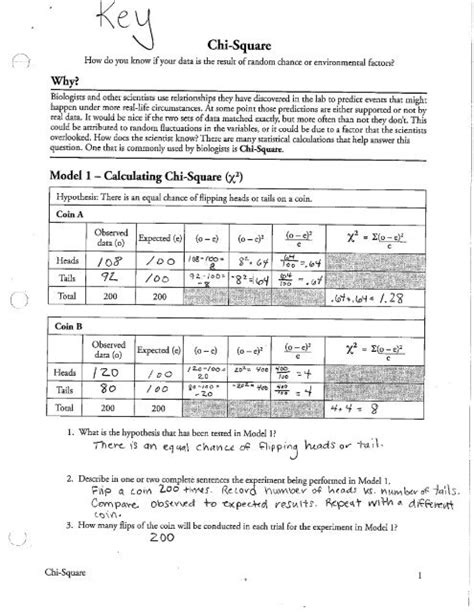 Key
Chi-Square
How do you know if your data is the result of random chance or environmental factors?
Why?
Biologists and other scientists use relationships they have discovered in the lab to predict events that might
happen under more real-life circumstances. At some point those predictions are either supported or not by
real data. It would be nice if the two sets of data matched exactly, but more often than not they don't. This
could be attributed to random fluctuations in the variables, or it could be due to a factor that the scientists
overlooked. How does the scientist know? There are many statistical calculations that help answer this
question. One that is commonly used by biologists is Chi-Square.
Model 1 – Calculating Chi-Square (χ²)
Hypothesis: There is an equal chance of flipping heads or tails on a coin.
Coin A
Observed data (o) Expected (e) (o – e) (o – e)² (o – e)²/e χ² = Σ(o – e)²/e
Heads 108 100 108-100= 8 8² = 64 64/100 = .64
Tails 92 100 92-100= -8 -8² = 64 64/100 = .64
Total 200 200 .64+.64 = 1.28
Coin B
Observed data (o) Expected (e) (o – e) (o – e)² (o – e)²/e χ² = Σ(o – e)²/e
Heads 120 100 120-100= 20 20² = 400 400/100 = 4
Tails 80 100 80-100= -20 -20² = 400 400/100 = 4
Total 200 200 4+4 = 8
1. What is the hypothesis that has been tested in Model 1?
There is an equal chance of flipping heads or tail.
2. Describe in one or two complete sentences the experiment being performed in Model 1.
Flip a coin 200 times. Record number of heads vs. number of tails.
Compare observed to expected results. Repeat with a different
coin.
3. How many flips of the coin will be conducted in each trial for the experiment in Model 1?
200
Chi-Square 1